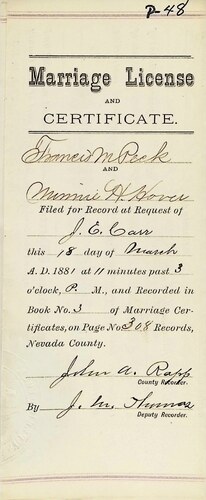 P-48
Marriage License
AND
CERTIFICATE.
Francis M Peck
AND
Minnie H. Hover
Filed for Record at Request of
J. E. Carr
this 18 day of March
A. D. 1881 at 11 minutes past 3
o'clock, P. M., and Recorded in
Book No. 3 of Marriage Cer-
tificates, on Page No. 308 Records,
Nevada County.
John A. Rapp
County Recorder.
By J. M.
Deputy Recorder.